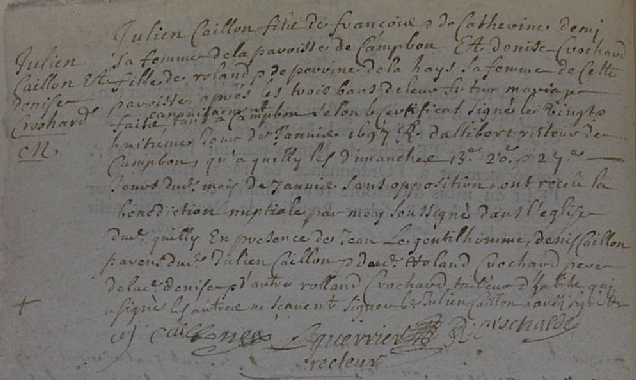 Julien Caillon fils de françois & de Catherine demi
sa femme de la paroisse de Campbon Et denise Crochard
Julien
Caillon Et
denise
Crochard
fille de roland & de perrine de la haye sa femme de Cette
paroisse après les trois bans de leur futur mariage
faite tant a Campbon selon le Certificat signé le vingt
huitieme Jour de Janvier 1697 R. dallibert recteur de
Campbon, qu'a quilly les dimanches 13e 20e & 27e
Jours dud. mois de Janvier sans opposition ont reciu la
benediction nuptiale par moy soussigné dans l'eglise
dud. quilly En presence de Jean Legentilhomme, denis Caillon
parens dud. Julien Caillon & dud. Roland Crochard pere
de lad. denise & d'autre rolland Crochard tailleur d'habits qui
a signé les autres ne scavent signer Julien Caillon
Guerrier
recteur